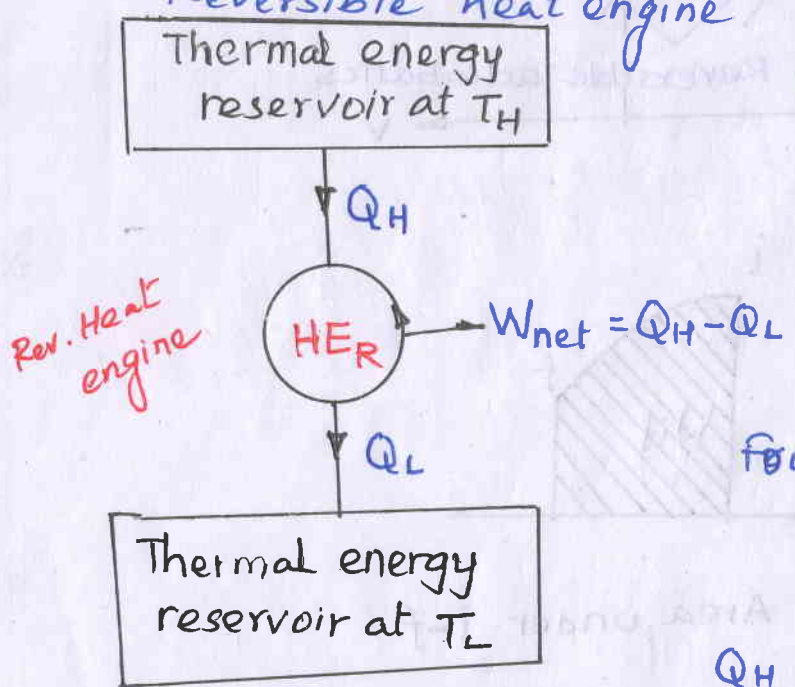 Reversible heat engine
Thermal energy
reservoir at T_H
Q_H
Rev. Heat
engine
HE_R
W_net = Q_H - Q_L
Q_L
Thermal energy
reservoir at T_L
Q_H